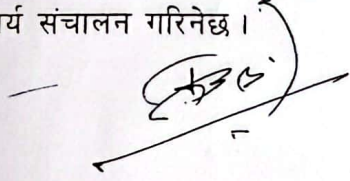 र्य संचालन गरिनेछ ।